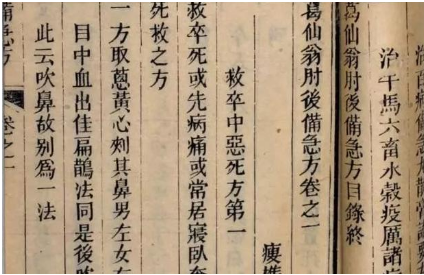 治百病備急丸散膏諸要方
治牛馬六畜水穀疫厲諸病
葛仙翁肘後備急方目錄終
葛仙翁肘後備急方卷之一
救卒中惡死方第一
救卒死或先病痛或常居寢臥奄
死救之方
一方取葱黃心刺其鼻男左女右
目中血出佳扁鵲法同是後
此云吹鼻故别為一法
備急方
卷之一